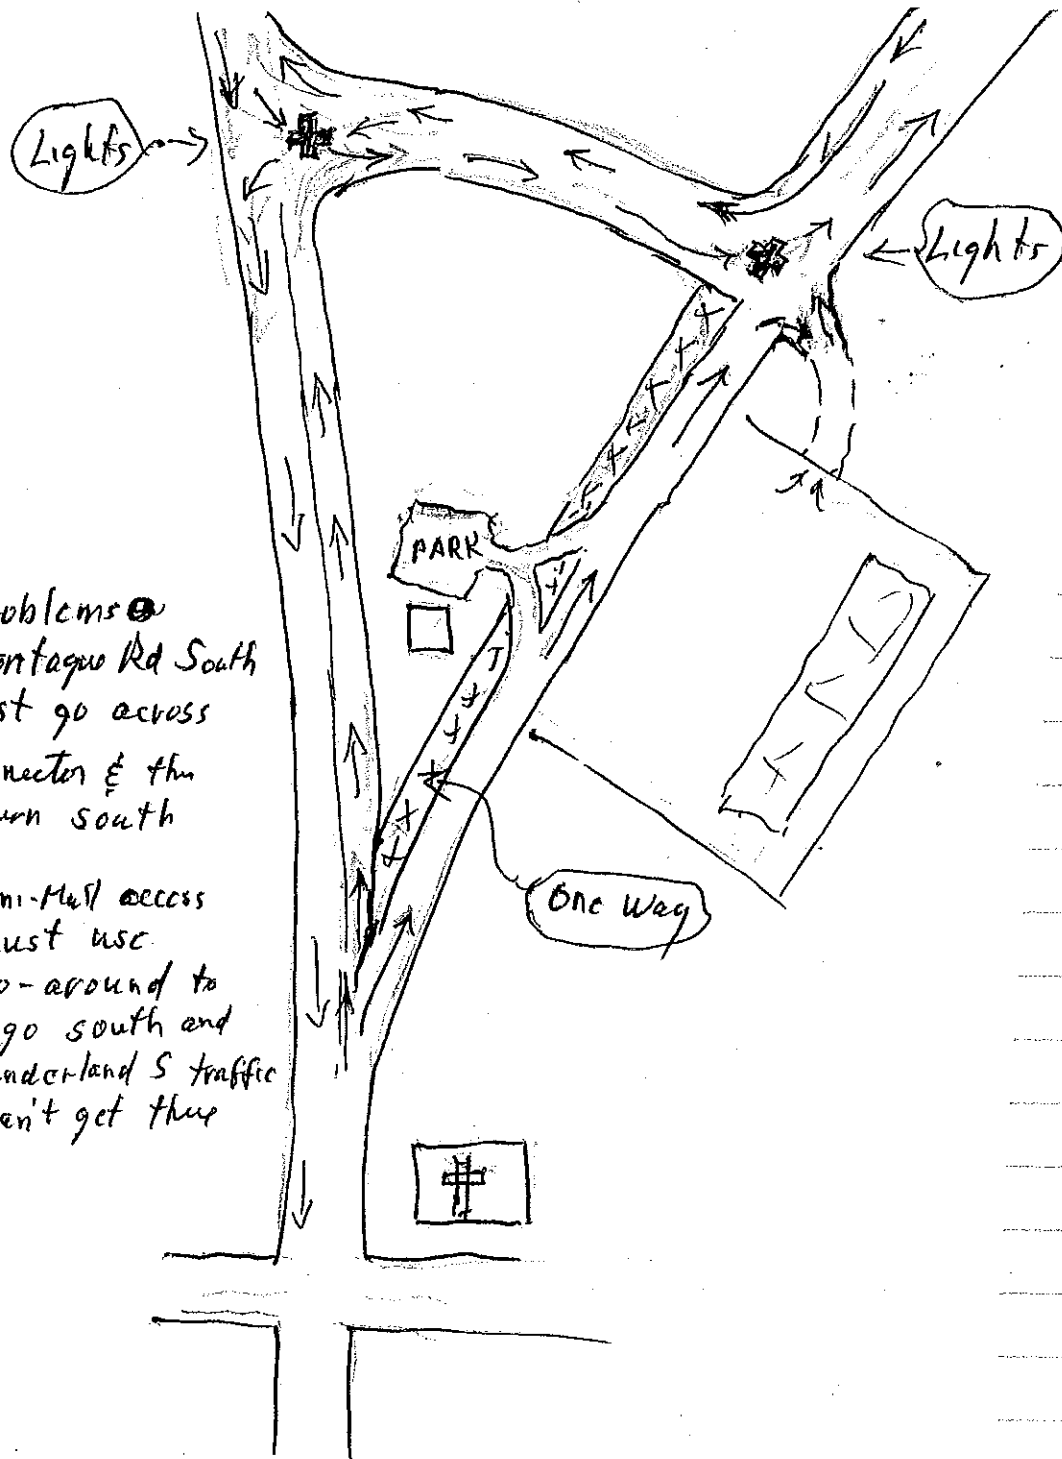 Lights
Lights
PARK
oblems
ontague Rd South
st go across
nector & thu
urn south
ni-Mall access
ust use
o-around to
go south and
underland S traffic
an't get thru
One Way